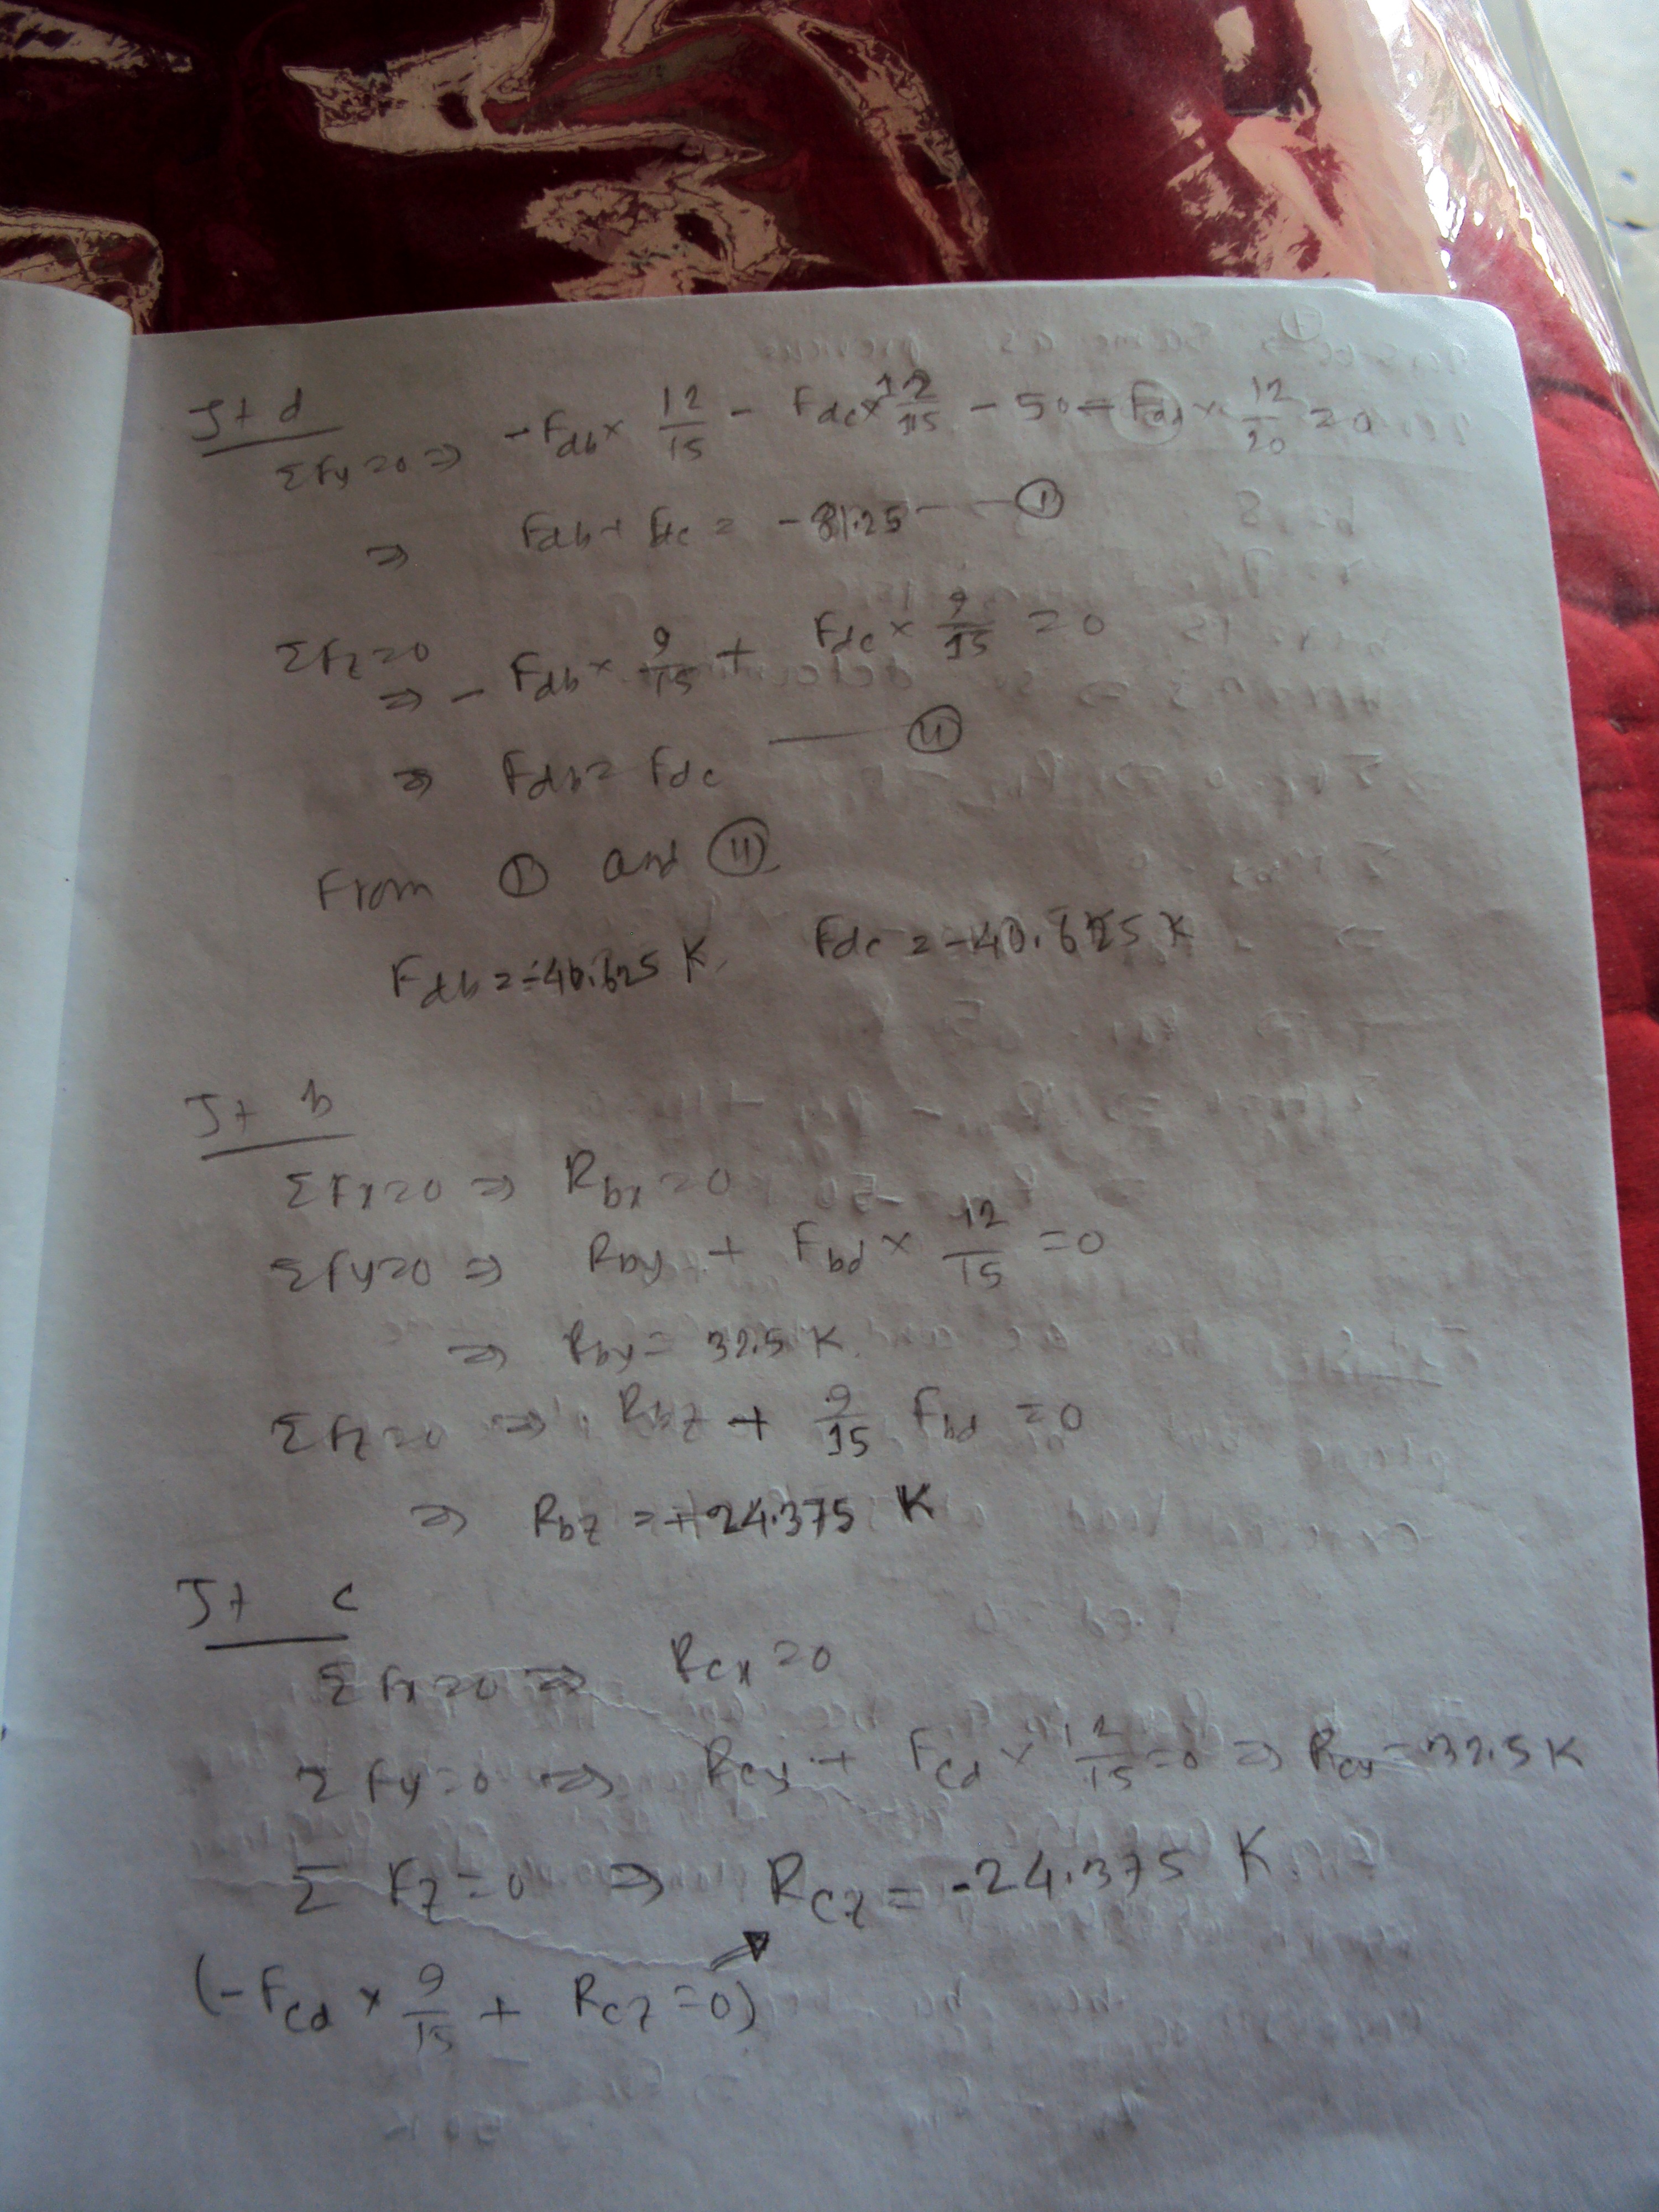 Jt d
ΣFy=0 ⇒ -Fdb × 12/15 - Fdc × 12/15 - 50 - Fda × 12/20 = 0
⇒ Fdb + Fdc = -81.25 — (I)
ΣFz=0
⇒ - Fdb × 9/15 + Fdc × 9/15 = 0
⇒ Fdb = Fdc — (II)
From (I) and (II)
Fdb = -40.625 K, Fdc = -40.625 K
Jt b
ΣFx=0 ⇒ Rbx = 0
ΣFy=0 ⇒ Rby + Fbd × 12/15 = 0
⇒ Rby = 32.5 K.
ΣFz=0 ⇒ Rbz + 9/15 Fbd = 0
⇒ Rbz = +24.375 K
Jt c
ΣFx=0 ⇒ Rcx = 0
ΣFy=0 ⇒ Rcy + Fcd × 12/15 = 0 ⇒ Rcy = 32.5 K
Σ Fz = 0 ⇒ Rcz = -24.375 K.
(-Fcd × 9/15 + Rcz = 0)